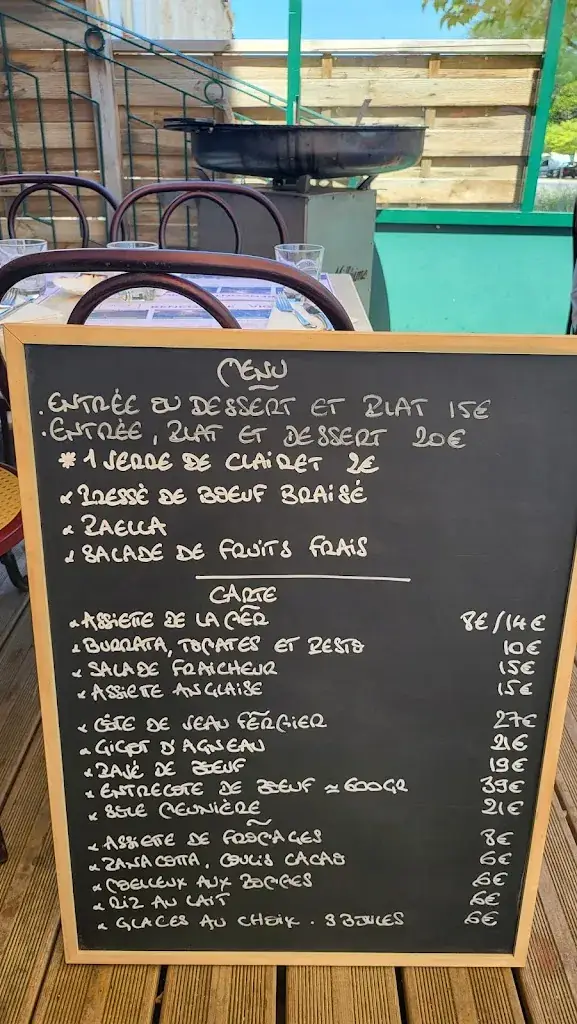 MENU
. ENTRÉE OU DESSERT ET PLAT 15€
. ENTRÉE, PLAT ET DESSERT 20€
* 1 VERRE DE CLAIRET 2€
* PRESSÉ DE BOEUF BRAISÉ
* PAELLA
* SALADE DE FRUITS FRAIS
CARTE
* ASSIETE DE LA MER 8€/14€
* BURRATA, TOMATES ET PESTO 10€
* SALADE FRAICHEUR 15€
* ASSIETE ANGLAISE 15€
* CÔTE DE VEAU FERMIER 27€
* GIGOT D'AGNEAU 21€
* PAVÉ DE BOEUF 19€
* ENTRECOTE DE BOEUF ≈ 600GR 39€
* SOLE MEUNIÈRE 21€
* ASSIETE DE FROMAGES 8€
* PANACOTTA, COULIS CACAO 6€
* MOELLEUX AUX POMMES 6€
* RIZ AU LAIT 6€
* GLACES AU CHOIX . 3 BOULES 6€